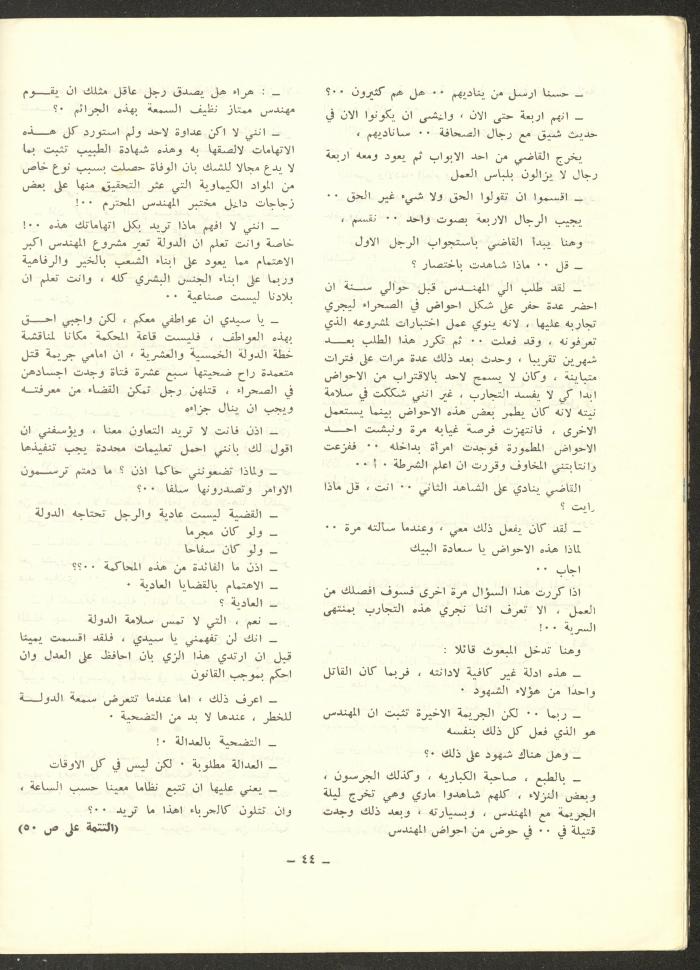 ـ حسنا ارسل من يناديهم ٠٠ هل هم كثيرون ٠٠؟
ـ انهم اربعة حتى الان ، واخشى ان يكونوا الان في
حديث شيق مع رجال الصحافة ٠٠ ساناديهم ،
يخرج القاضي من احد الابواب ثم يعود ومعه اربعة
رجال لا يزالون بلباس العمل
ـ اقسموا ان تقولوا الحق ولا شيء غير الحق ٠٠
يجيب الرجال الاربعة بصوت واحد ٠٠ نقسم ،
وهنا يبدأ القاضي باستجواب الرجل الاول
ـ قل ٠٠ ماذا شاهدت باختصار ؟
ـ لقد طلب الي المهندس قبل حوالي سنة ان
احضر عدة حفر على شكل احواض في الصحراء ليجري
تجاربه عليها ، لانه ينوي عمل اختبارات لمشروعه الذي
تعرفونه ، وقد فعلت ٠٠ ثم تكرر هذا الطلب بعد
شهرين تقريبا ، وحدث بعد ذلك عدة مرات على فترات
متباينة ، وكان لا يسمح لاحد بالاقتراب من الاحواض
ابدا كي لا يفسد التجارب ، غير انني شككت في سلامة
نيته لانه كان يطمر بعض هذه الاحواض بينما يستعمل
الاخرى ، فانتهزت فرصة غيابه مرة ونبشت احد
الاحواض المطمورة فوجدت امرأة بداخله ٠٠ ففزعت
وانتابتني المخاوف وقررت ان اعلم الشرطة ٠!٠٠
القاضي ينادي على الشاهد الثاني ٠٠ انت ، قل ماذا
رايت ؟
ـ لقد كان يفعل ذلك معي ، وعندما سالته مرة ٠٠
لماذا هذه الاحواض يا سعادة البيك
اجاب ٠٠
اذا كررت هذا السؤال مرة اخرى فسوف افصلك من
العمل ، الا تعرف اننا نجري هذه التجارب بمنتهى
السرية ٠٠!
وهنا تدخل المبعوث قائلا :
ـ هذه ادلة غير كافية لادانته ، فربما كان القاتل
واحدا من هؤلاء الشهود ٠
ـ ربما ٠٠ لكن الجريمة الاخيرة تثبت ان المهندس
هو الذي فعل كل ذلك بنفسه
ـ وهل هناك شهود على ذلك ٠؟
ـ بالطبع ، صاحبة الكباريه ، وكذلك الجرسون ،
وبعض النزلاء ، كلهم شاهدوا ماري وهي تخرج ليلة
الجريمة مع المهندس ، وبسيارته ، وبعد ذلك وجدت
قتيلة في ٠٠ في حوض من احواض المهندس
ـ : هراء هل يصدق رجل عاقل مثلك ان يقوم
مهندس ممتاز نظيف السمعة بهذه الجرائم ٠؟
ـ انني لا اكن عداوة لاحد ولم استورد كل هذه
الاتهامات لالصقها به وهذه شهادة الطبيب تثبت بما
لا يدع مجالا للشك بان الوفاة حصلت بسبب نوع خاص
من المواد الكيماوية التي عثر التحقيق منها على بعض
زجاجات داخل مختبر المهندس المحترم ٠٠!
ـ انني لا افهم ماذا تريد بكل اتهاماتك هذه ٠٠!
خاصة وانت تعلم ان الدولة تعير مشروع المهندس اكبر
الاهتمام مما يعود على ابناء الشعب بالخير والرفاهية
وربما على ابناء الجنس البشري كله ، وانت تعلم ان
بلادنا ليست صناعية ٠٠
ـ يا سيدي ان عواطفي معكم ، لكن واجبي احق
بهذه العواطف ، فليست قاعة المحكمة مكانا لمناقشة
خطة الدولة الخمسية والعشرية ، ان امامي جريمة قتل
متعمدة راح ضحيتها سبع عشرة فتاة وجدت اجسادهن
في الصحراء ، قتلهن رجل تمكن القضاء من معرفته
ويجب ان ينال جزاءه
ـ اذن فانت لا تريد التعاون معنا ، ويؤسفني ان
اقول لك بانني احمل تعليمات محددة يجب تنفيذها
ـ ولماذا تضعونني حاكما اذن ؟ ما دمتم ترسمون
الاوامر وتصدرونها سلفا ٠٠؟
ـ القضية ليست عادية والرجل تحتاجه الدولة
ـ ولو كان مجرما
ـ ولو كان سفاحا
ـ اذن ما الفائدة من هذه المحاكمة ٠٠؟؟
ـ الاهتمام بالقضايا العادية ٠
ـ العادية ؟
ـ نعم ، التي لا تمس سلامة الدولة
ـ انك لن تفهمني يا سيدي ، فلقد اقسمت يمينا
قبل ان ارتدي هذا الزي بان احافظ على العدل وان
احكم بموجب القانون
ـ اعرف ذلك ، اما عندما تتعرض سمعة الدولة
للخطر ، عندها لا بد من التضحية ٠
ـ التضحية بالعدالة ٠!
ـ العدالة مطلوبة ٠ لكن ليس في كل الاوقات
ـ يعني عليها ان تتبع نظاما معينا حسب الساعة ،
وان تتلون كالحرباء اهذا ما تريد ٠٠؟
(التتمة على ص ٥٠)
ـ ٤٤ ـ